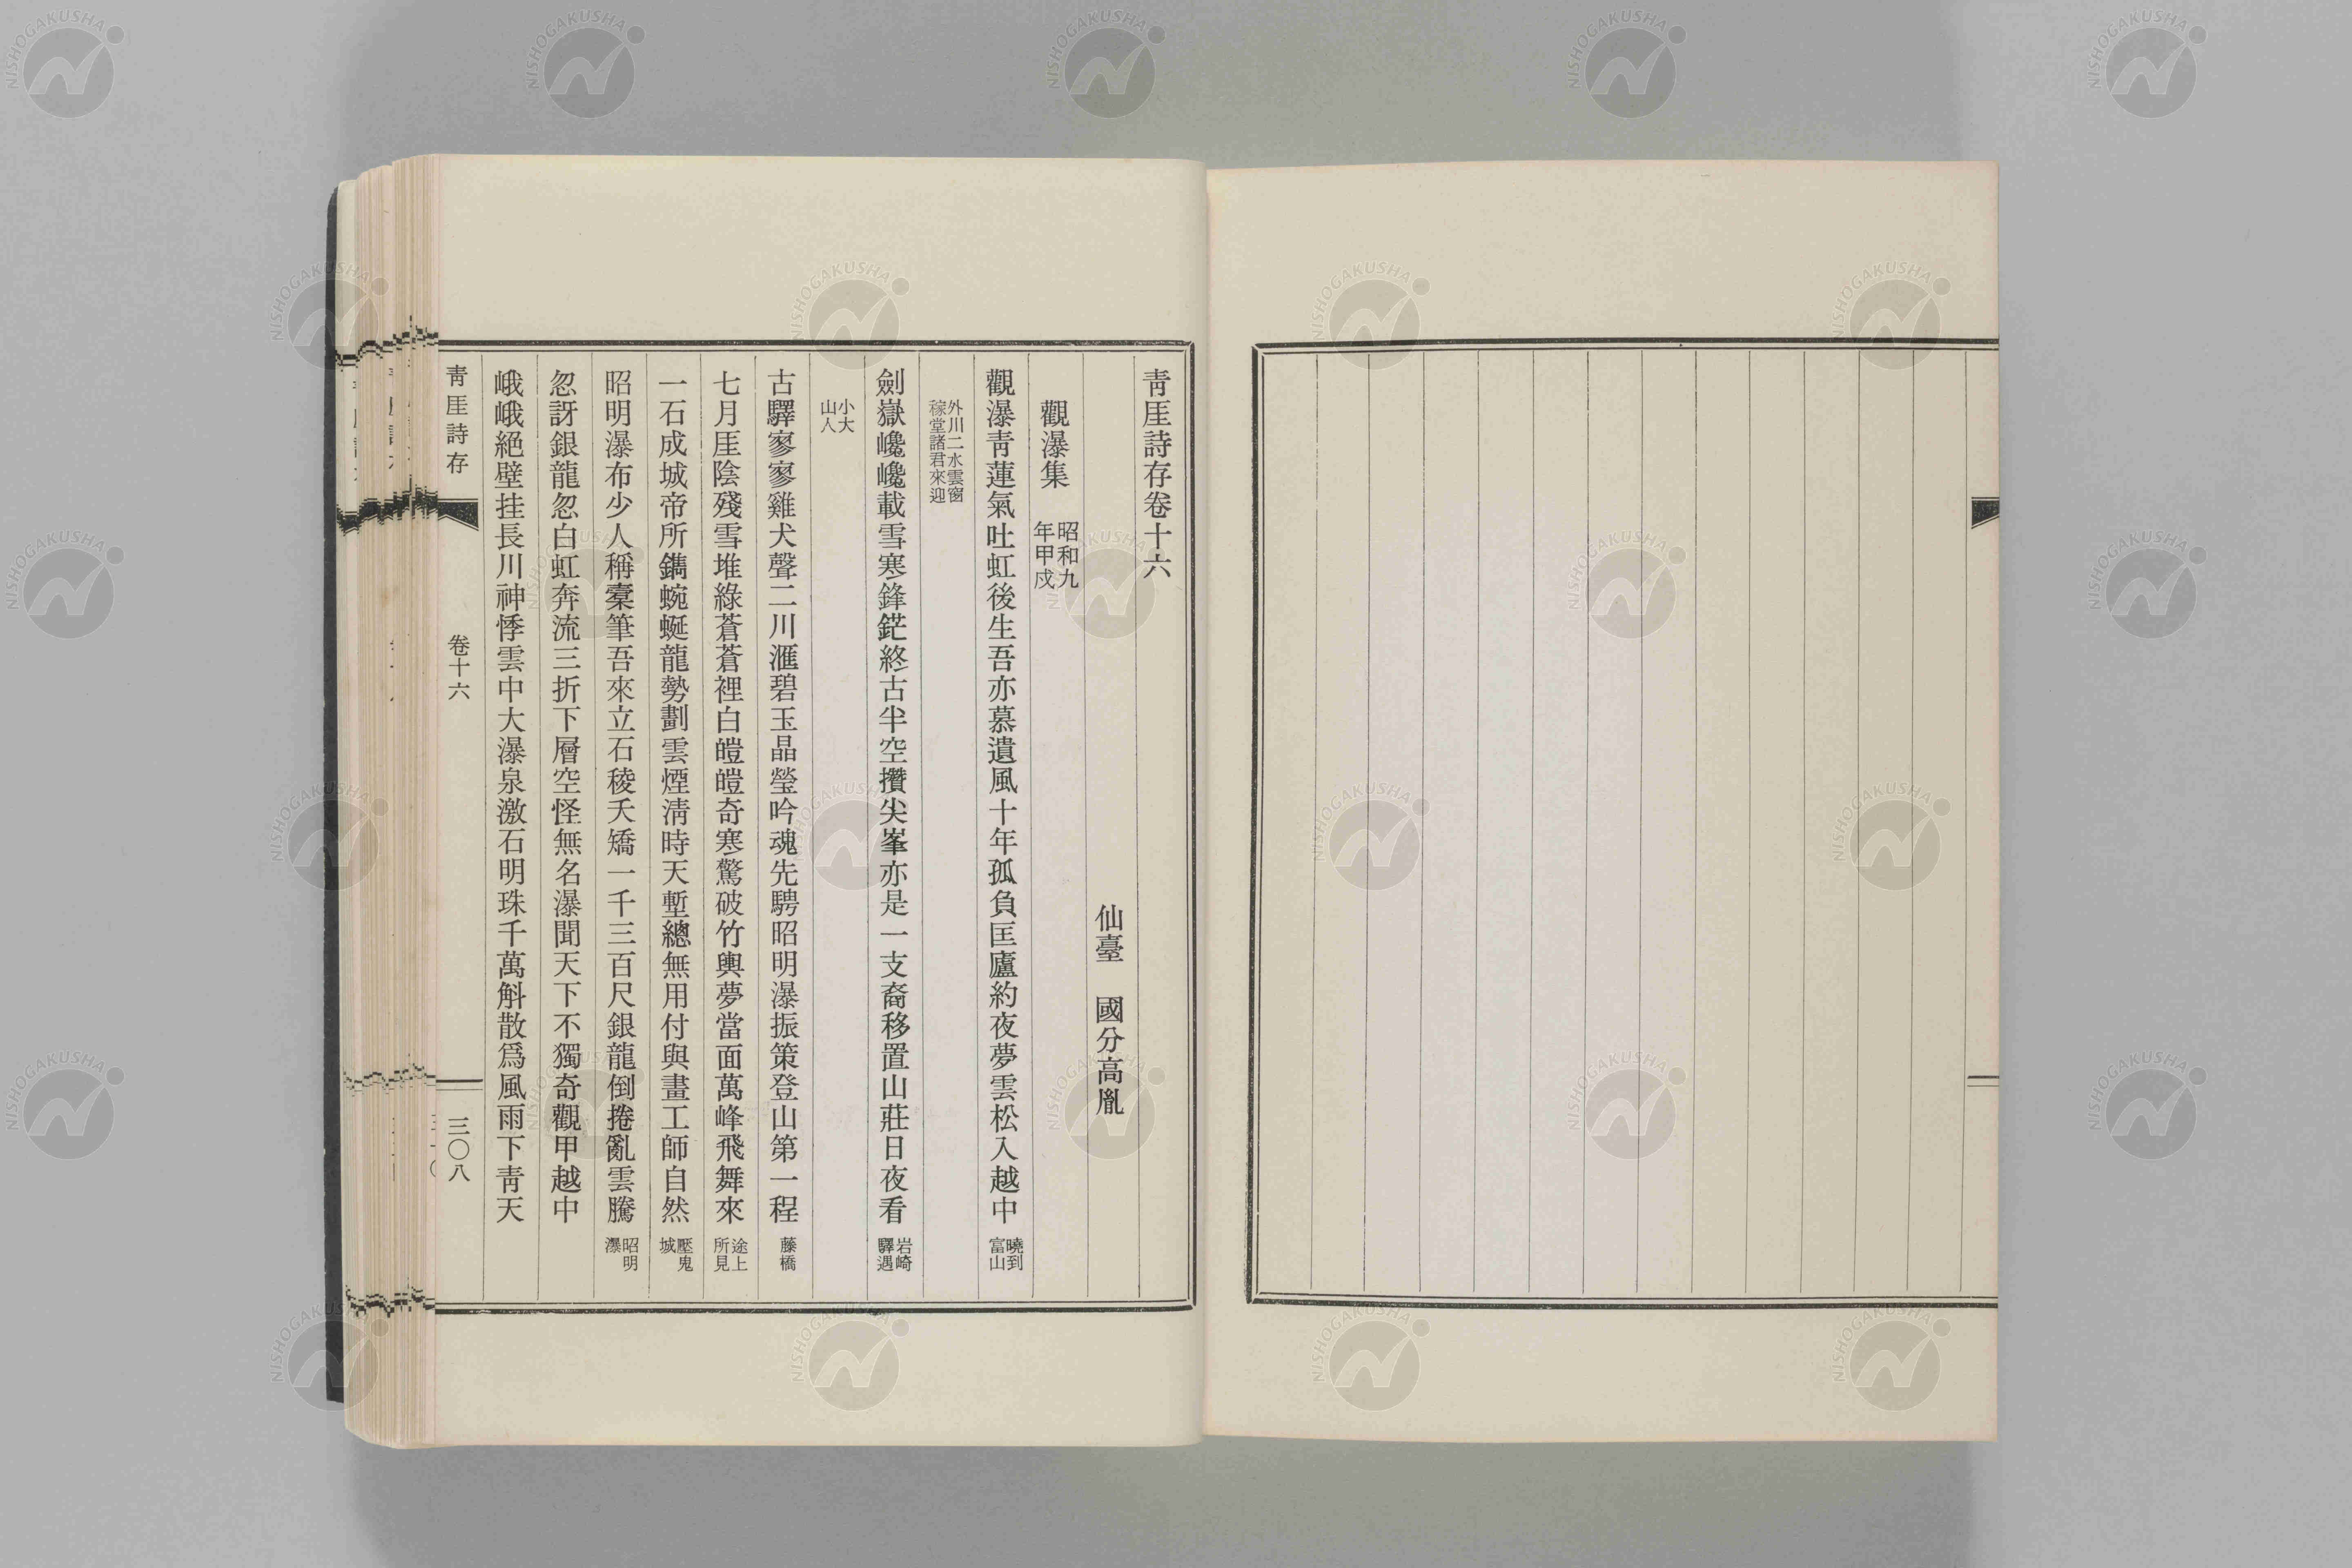 靑厓詩存卷十六
仙臺　國分高胤
觀瀑集　昭和九年甲戌
觀瀑靑蓮氣吐虹後生吾亦慕遺風十年孤負匡廬約夜夢雲松入越中　曉到富山
外川二水雲窗稼堂諸君來迎
劍嶽巉巉載雪寒鋒鋩終古半空攢尖峯亦是一支裔移置山莊日夜看　岩崎驛遇
小大山人
古驛寥寥雞犬聲二川滙碧玉晶瑩吟魂先騁昭明瀑振策登山第一程　藤橋
七月厓陰殘雪堆綠蒼蒼裡白皚皚奇寒驚破竹輿夢當面萬峰飛舞來　途上所見
一石成城帝所鐫蜿蜒龍勢劃雲煙淸時天塹總無用付與畫工師自然　壓鬼城
昭明瀑布少人稱橐筆吾來立石稜夭矯一千三百尺銀龍倒捲亂雲騰　昭明瀑
忽訝銀龍忽白虹奔流三折下層空怪無名瀑聞天下不獨奇觀甲越中
峨峨絕壁挂長川神悸雲中大瀑泉激石明珠千萬斛散爲風雨下靑天
靑厓詩存
卷十六
三〇八
NISHOGAKUSHA